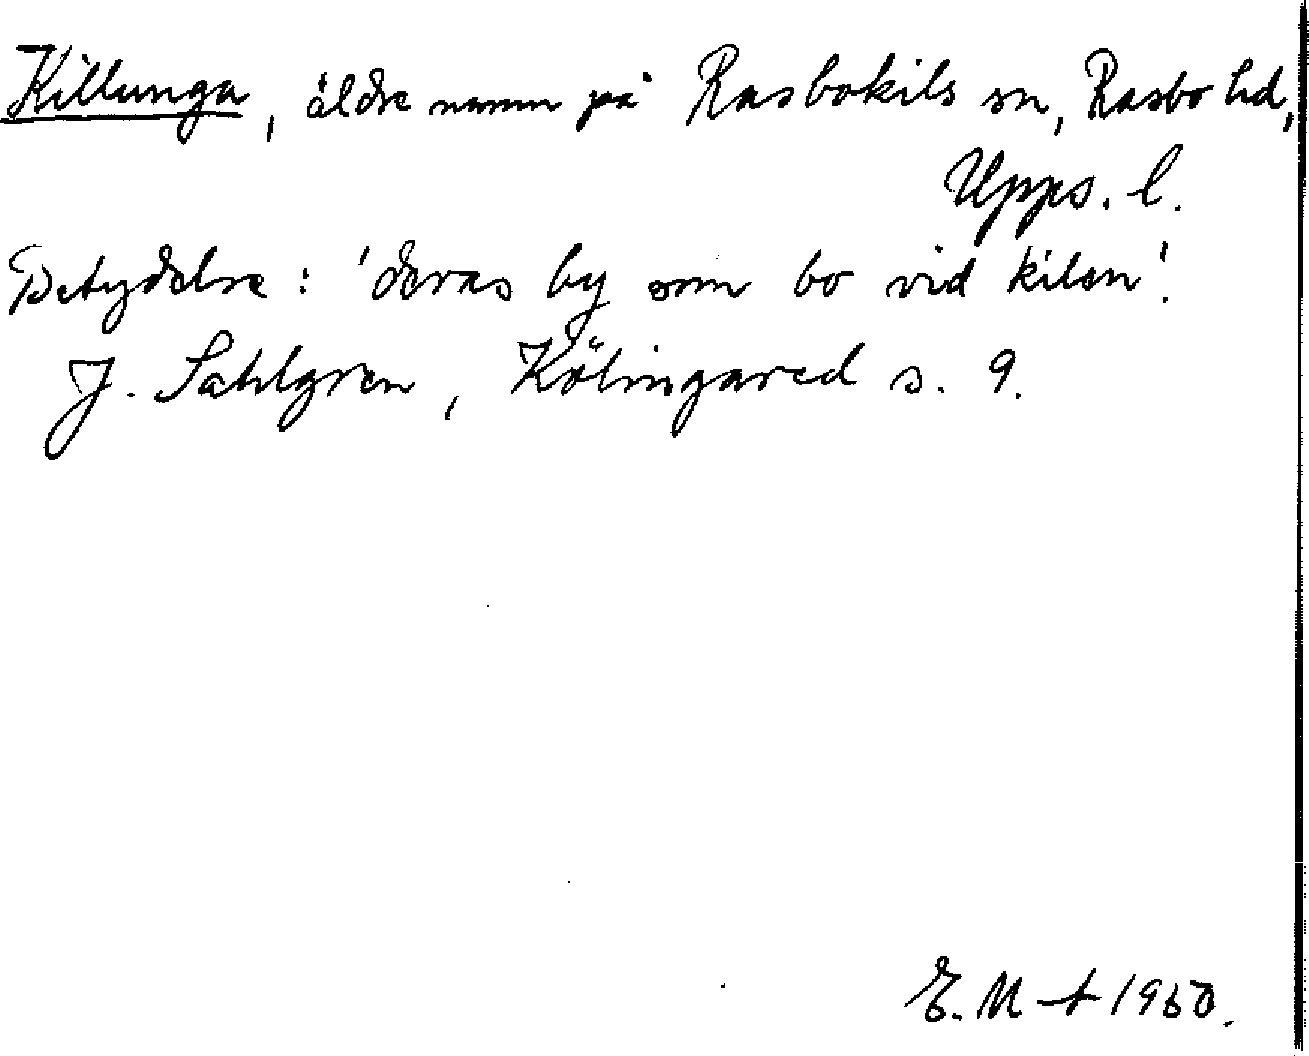 Killunga, äldre namn på Rasbokils sn, Rasbo hd,
Upps. l.
Betydelse: 'deras by som bo vid kilen'.
J. Sahlgren, Kölingared s. 9.
E. M-t 1960.